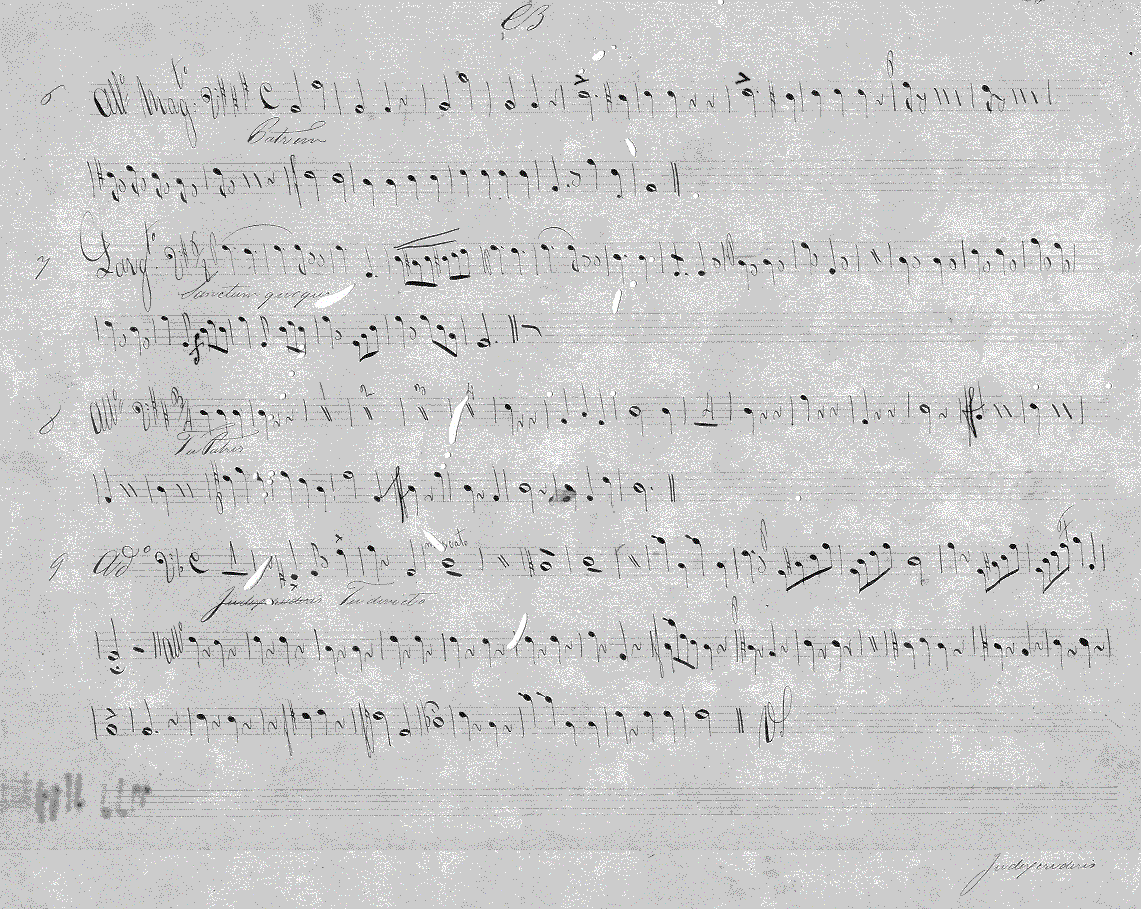 CB
6 All.º Mag.to
Patrem
7 Larg.to
Sanctum quoque
8 All.º
Tu Patris
1 2 3 4
9 Ad.º
Judex crederis Tu devicto
All.º
Judex crederis